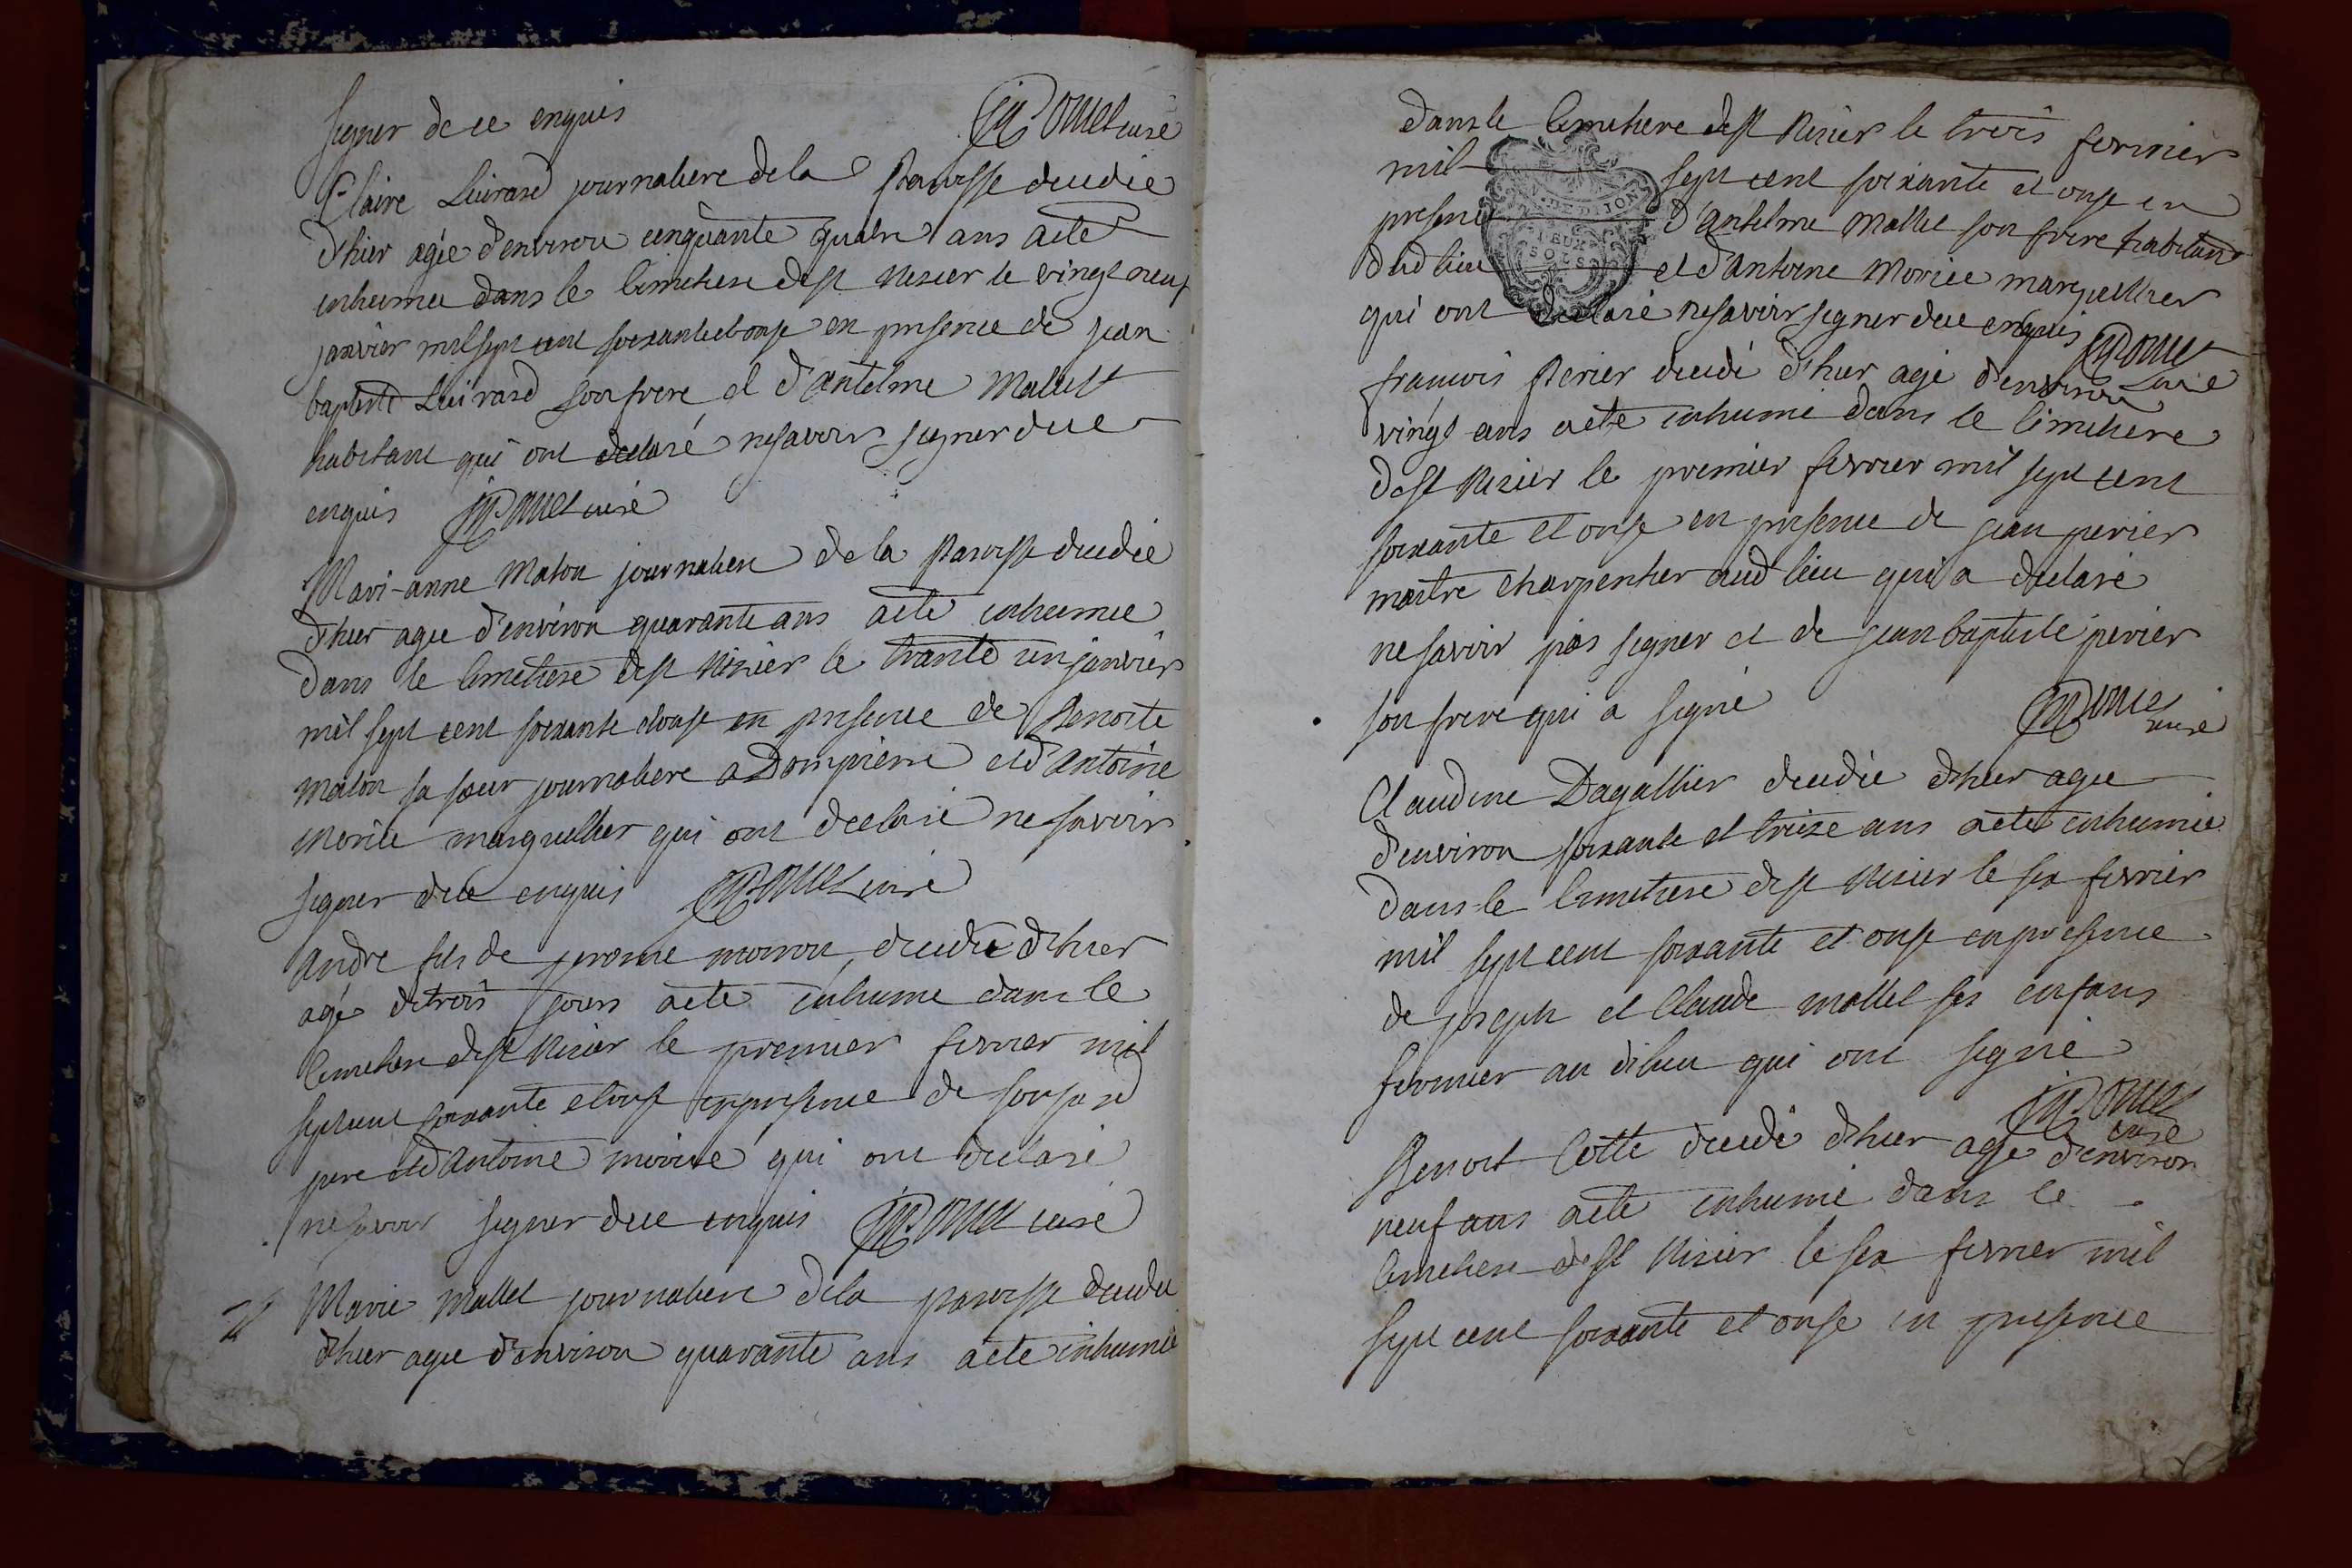 signer de ce enquis curé
Claire Luirard journaliere de la Paroisse decedée
d'hier agée d'environ cinquante quatre ans a eté
inhumée dans le cimetiere de st Nisier le vingt neuf
janvier mil sept cent soixante et onse en presence de jean
baptiste Luirard son frere et d'antelme Mallet
habitant qui ont declaré ne savoir signer de ce
enquis curé
Mari-anne Maton journaliere de la Paroisse decedée
d'hier agee d'environ quarante ans a eté inhumee
dans le cimetiere de st Nisier le trante un janvier
mil sept cent soixante et onse en presence de Benoite
Maton sa sœur journaliere a Dompierre et d'antoine
Morice marguellier qui ont declaré ne savoir
signer de ce enquis curé
andre fils de jerome moiron decedé d'hier
agé de trois jours a eté inhume dans le
cimetiere de st Nisier le premier fevrier mil
sept cent soixante et onse en presence de son
pere et d'antoine morice qui ont declaré
ne savoir signer de ce enquis curé
Marie Mallet journaliere de la paroisse decedee
d'hier agee d'environ quarante ans a eté inhumée
dans le cimetiere de st Nisier le trois fevrier
mil sept cent soixante et onse en
presence d'antelme Mallet son frere habitant
dud lieu et d'antoine Morice marguellier
qui ont declaré ne savoir signer de ce enquis
curé
francois Perier decedé d'hier agé d'environ
vingt ans a eté inhumé dans le cimetiere
de st Nisier le premier fevrier mil sept cent
soixante et onse en presence de jean perier
maitre charpentier aud lieu qui a declaré
ne savoir pas signer et de jean baptiste perier
son frere qui a signé
curé
Claudine Dagallier decedée d'hier agee
d'environ soixante et treize ans a eté inhumée
dans le cimetiere de st Nisier le six fevrier
mil sept cent soixante et onse en presence
de joseph et Claude mallet ses enfans
fermier au di lieu qui ont signé
curé
Benoit Cotte decedé d'hier agé d'environ
neuf ans a eté inhumé dans le
cimetiere de st Nisier le six fevrier mil
sept cent soixante et onse en presence